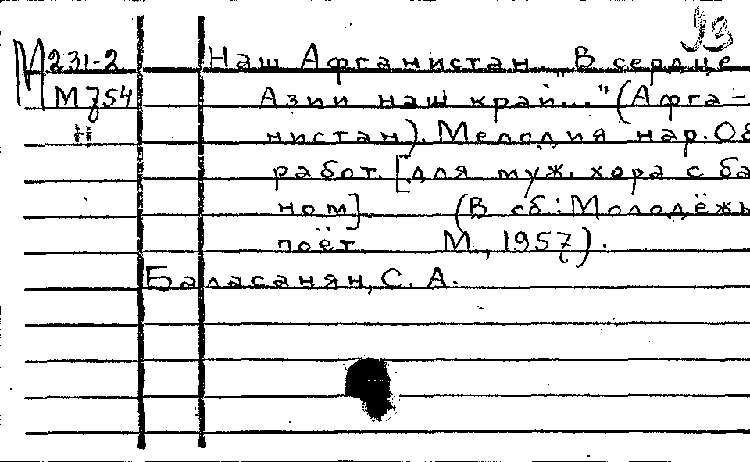 93
М 231-2 Наш Афганистан „В сердце
М 754 Азии наш край..." (Афга-
нистан). Мелодия нар. Об
работ. [для муж. хора с ба
ном] (В сб.: Молодёжь
поёт М., 1957).
Баласанян, С. А.